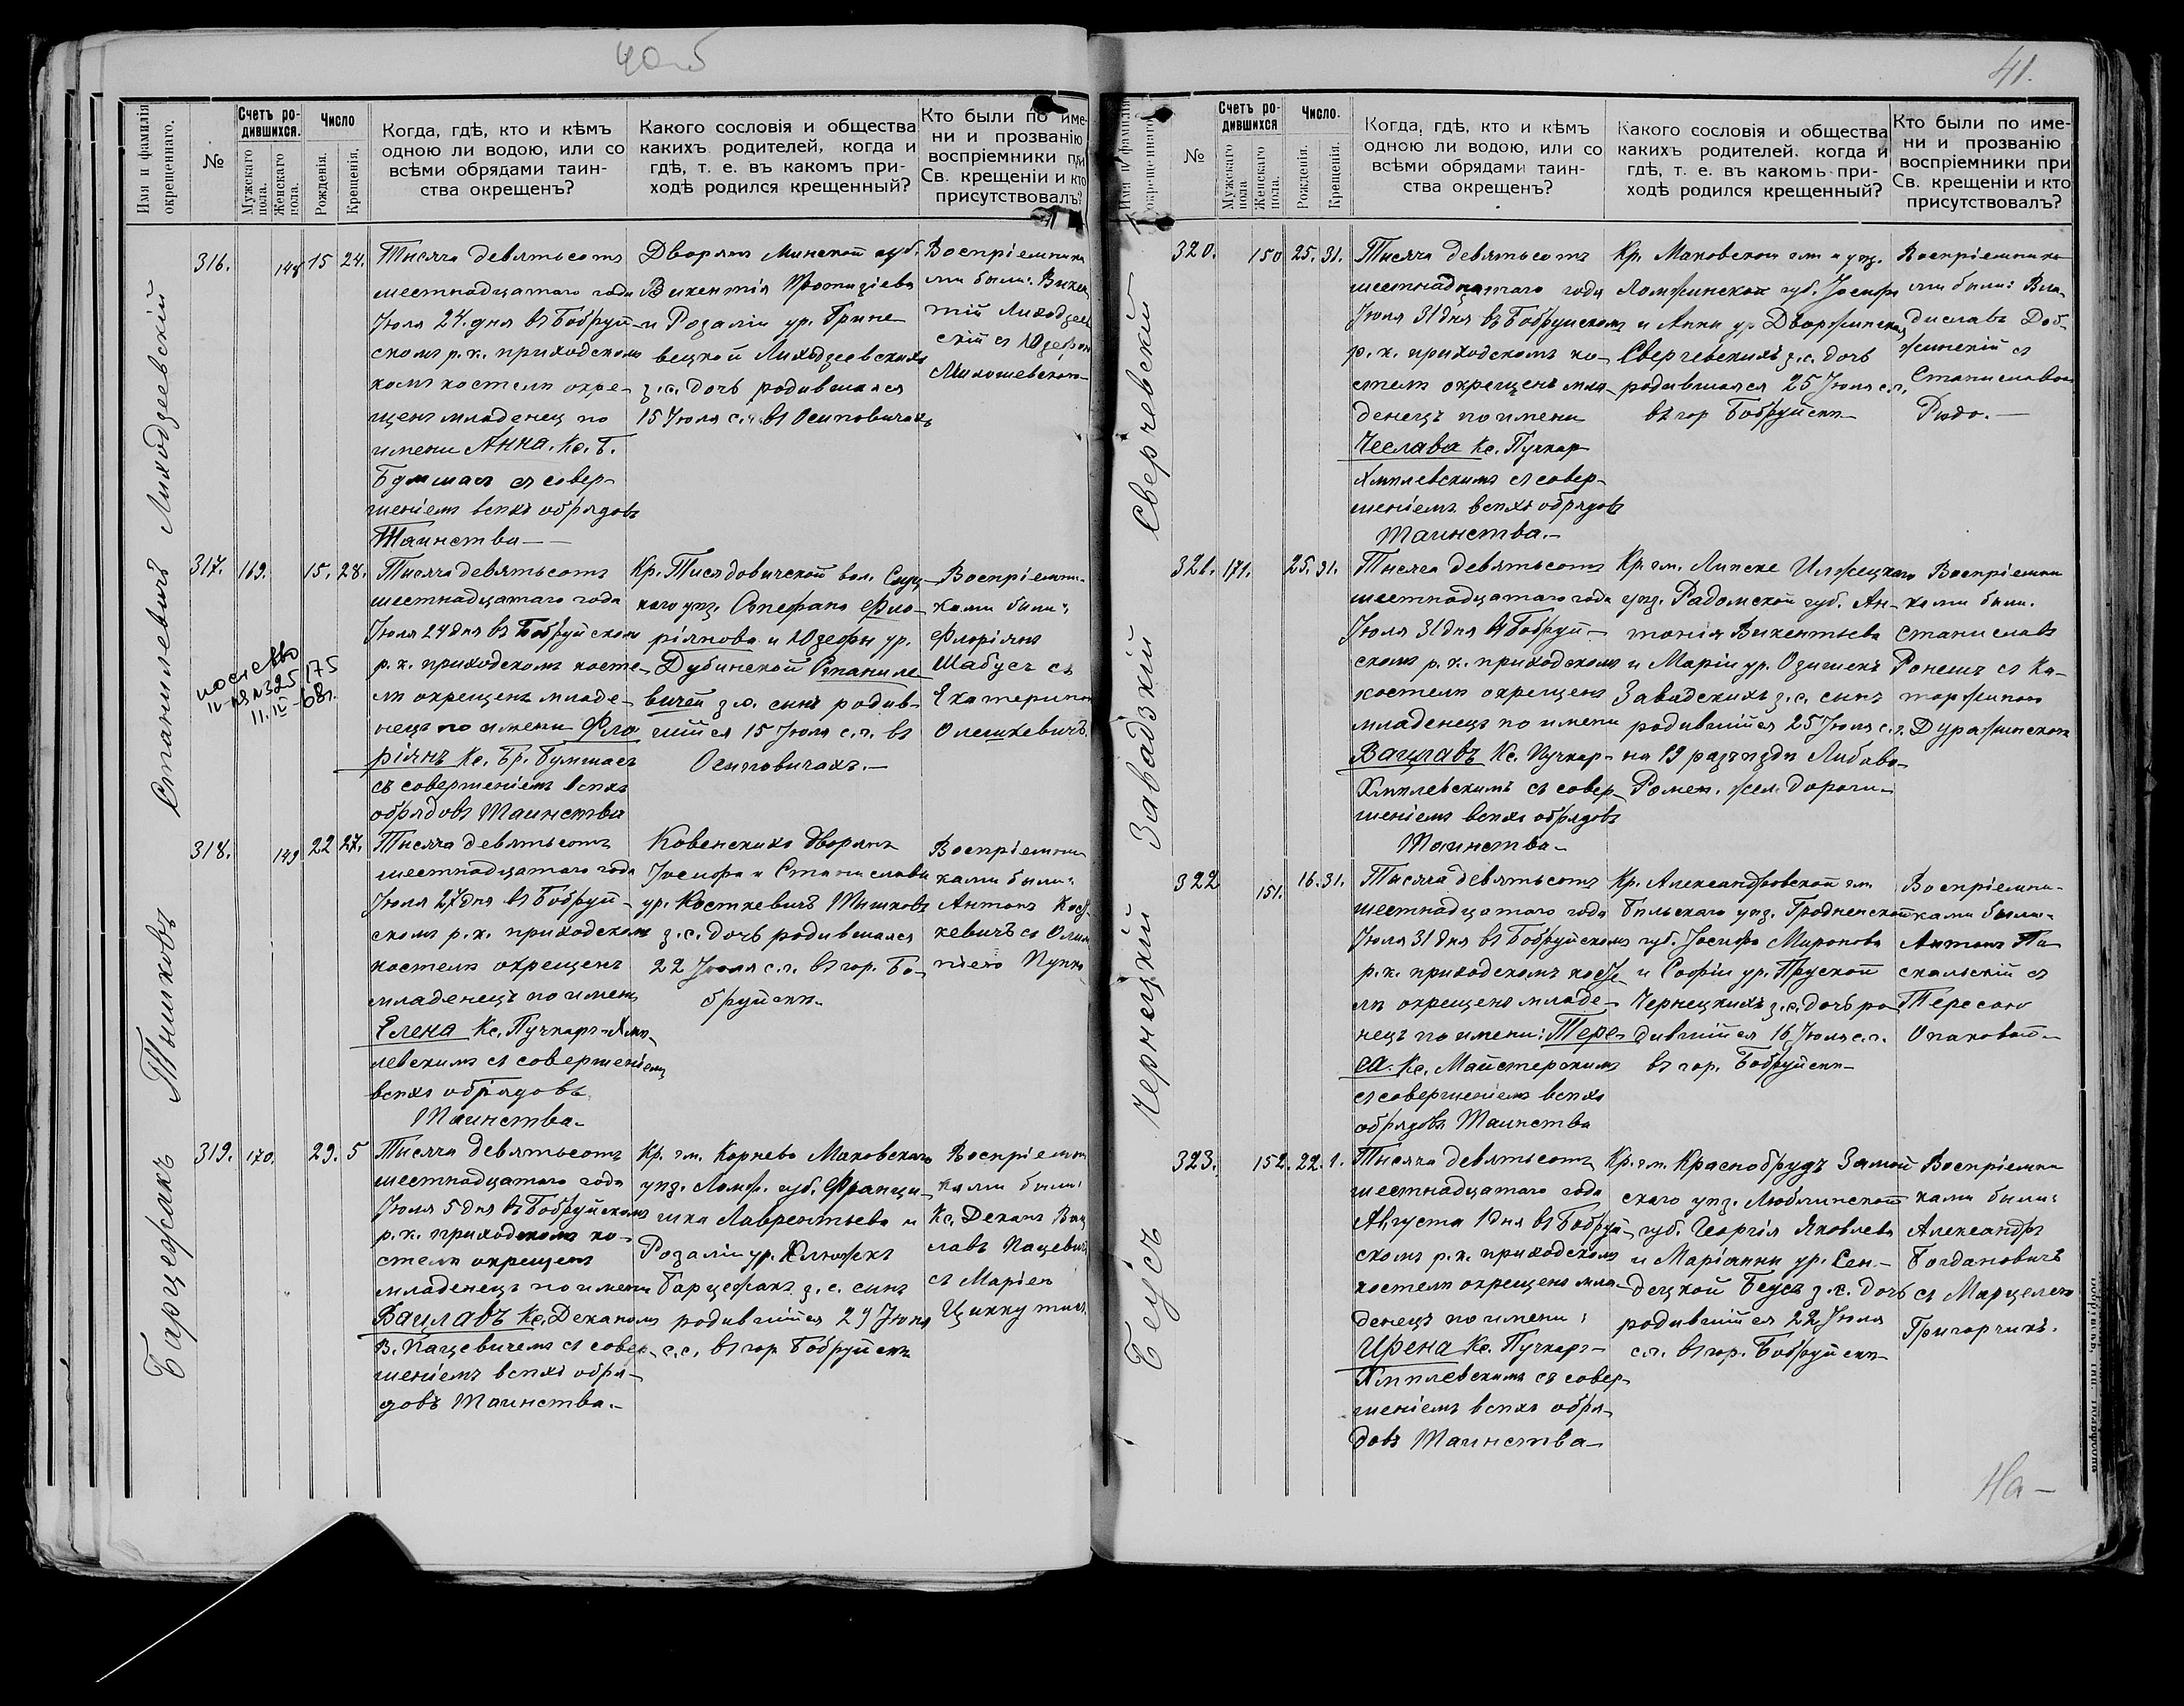 40 б
Имя и фамилія окрещеннаго.
№
Счетъ родившихся.
Мужскаго пола.
Женскаго пола.
Число
Рожденія.
Крещенія.
Когда, гдѣ, кто и кѣмъ
одною ли водою, или со
всѣми обрядами таин-
ства окрещенъ?
Какого сословія и общества
какихъ родителей, когда и
гдѣ, т. е. въ какомъ при-
ходѣ родился крещенный?
Кто были по име-
ни и прозванію
воспріемники при
Св. крещеніи и кто
присутствовалъ?
Лиходзеевскій
316.
148
15
24.
Тысяча девятьсотъ
шестнадцатаго года
Іюля 24. дня въ Бобруй-
скомъ р. к. приходскомъ
костелѣ окре-
щенъ младенец по
имени Анна. Кс. Б.
Бумшасъ съ совер-
шеніемъ всѣхъ обрядовъ
Таинства
Дворянъ Минской губ.
Викентія
и Розаліи ур. Грине-
вецкой Лиходзеевскихъ
з.с. дочь родившаяся
15 Іюля с.г. въ Осиповичахъ
Воспріемника
ми были: Викен
тій Лиходзеев
скій съ Юзефою
Милошевскою
Станилевичъ
317.
169.
15.
28.
Тысяча девятьсотъ
шестнадцатаго года
Іюля 24 дня въ Бобруйскомъ
р. к. приходскомъ косте-
лѣ окрещенъ младе-
нецъ по имени Фло
ріянъ Кс. Бр. Бумшасъ
съ совершеніемъ всѣхъ
обрядовъ Таинства
вол. Слуц
каго уѣз. Стефана Фло-
ріянова и Юзефы ур.
Дубинской Станиле
вичей з.с. сынъ родив-
шійся 15 Іюля с.г. въ
Осиповичахъ.
Воспріемни-
ками были:
Флоріянъ
Шабусъ съ
Екатериною
Олешкевичъ.
№ 325 175
11. IV - 68 г.
Тышковъ
318.
149
22
27.
Тысяча девятьсотъ
шестнадцатаго года
Іюля 27 дня въ Бобруй-
скомъ р. к. приходскомъ
костелѣ окрещенъ
младенецъ по имени
Елена Кс. Пучкаръ-Хмѣ-
левскимъ съ совершеніемъ
всѣхъ обрядовъ
Таинства.
Ковенскихъ дворянъ
Іосифа и Станиславы
ур. Косткевичъ Тышковъ
з.с. дочь родившаяся
22 Іюля с.г. въ гор. Бо-
бруйскѣ.
Воспріемни
ками были:
Антонъ Кост
кевичъ съ Олим
піею
Барцефакъ
319.
170.
29.
5
Тысяча девятьсотъ
шестнадцатаго года
Іюля 5 дня въ Бобруйскомъ
р. к. приходскомъ ко-
стелѣ окрещенъ
младенецъ по имени
Вацлавъ Кс. Деканомъ
В. Пацевичемъ съ совер-
шеніемъ всѣхъ обря-
довъ Таинства.
Кр. гм. Корнево Маковскаго
уѣз. Ломж. губ. Франци-
шка Лаврентьева и
Розаліи ур.
Барцефакъ з. с. сынъ
родившійся 29 Іюня
с.г. въ гор. Бобруйскѣ
Воспріемни
ками были:
Кс. Деканъ Вац
лавъ Пацевичъ
съ Маріею
41.
Имя и фамилія окрещеннаго.
№
Счетъ родившихся
Мужскаго пола
Женскаго пола.
Число.
Рожденія.
Крещенія.
Когда, гдѣ, кто и кѣмъ
одною ли водою, или со
всѣми обрядами таин-
ства окрещенъ?
Какого сословія и общества
какихъ родителей. когда и
гдѣ, т. е. въ какомъ при-
ходѣ родился крещенный?
Кто были по име-
ни и прозванію
воспріемники при
Св. крещеніи и кто
присутствовалъ?
Сверчевскій
320.
150
25.
31.
Тысяча девятьсотъ
шестнадцатаго года
Іюля 31 дня въ Бобруйскомъ
р. к. приходскомъ ко-
стелѣ окрещенъ мла-
денецъ по имени
Чеслава Кс. Пучкар
Хмѣлевскимъ съ совер-
шеніемъ всѣхъ обрядовъ
Таинства.
Кр. Маковской гм. и уѣз.
Ломжинской губ. Іосифа
и Анны ур.
Сверчевскихъ з.с. дочь
родившаяся 25 Іюля с.г.
въ гор Бобруйскѣ
Воспріемника
ми были: Вла-
диславъ Доб-
жинскій съ
Станиславою
Рыдо.
Завадзкій
321.
171.
25.
31.
Тысяча девятьсотъ
шестнадцатаго года
Іюля 31 дня въ Бобруй-
скомъ р. к. приходскомъ
костелѣ окрещенъ
младенецъ по имени
Вацлавъ Кс. Пучкар-
Хмѣлевскимъ съ совер-
шеніемъ всѣхъ обрядовъ
Таинства.
Кр. гм. Липске Илжецкаго
уѣз. Радомской губ. Ан-
тонія Викентьева
и Маріи ур.
Завадскихъ з.с. сынъ
родившійся 25 Іюля с.г.
на 19 разъѣздѣ Либаво-
Ромен. жел. дороги.
Воспріемни
ками были.
Станиславъ
съ Ка-
таржиною
Дуражинскою
Чернецкій
322
151.
16.
31.
Тысяча девятьсотъ
шестнадцатаго года
Іюля 31 дня въ Бобруйскомъ
р. к. приходскомъ косте
лѣ окрещенъ младе-
нецъ по имени: Тере-
са. Кс. Майстерскимъ
съ совершеніемъ всѣхъ
обрядовъ Таинства
Кр. Александровской гм.
Бѣльскаго уѣз. Гродненской
губ. Іосифа Миронова
и Софіи ур. Прускойъ
Чернецкихъ з.с. дочь ро
дившійся 16 Іюля с.г.
въ гор. Бобруйскѣ
Воспріемни-
ками были.
Антонъ Па
скальскій съ
Тересою
Беусъ
323.
152.
22.
1.
Тысяча девятьсотъ
шестнадцатаго года
Августа 1 дня въ Бобруй-
скомъ р. к. приходскомъ
костелѣ окрещенъ мла-
денецъ по имени:
Ирена Кс. Пучкаръ-
Хмѣлевскимъ съ совер-
шеніемъ всѣхъ обря-
довъ Таинства
Кр. гм. Краснобрудъ Замой
скаго уѣз. Люблинской
губ. Георгія Яковлева
и Маріанны ур. Сен-
децкой Беусъ з.с. дочь
родившійся 22 Іюля
с.г. въ гор. Бобруйскѣ
Воспріемни
ками были:
Александръ
Богдановичъ
съ Марцелею
Григорчикъ.
На -